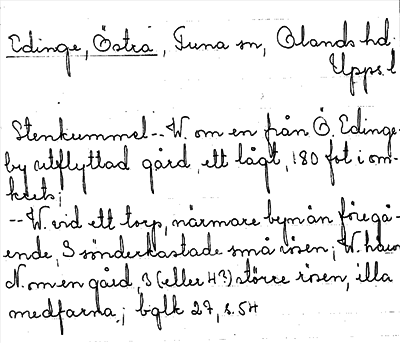 Edinge, Östra, Tuna sn, Olands hd.
Upps. l
Stenkummel -- W. om en från Ö. Edinge
by utflyttad gård, ett lågt, 180 fot i om-
krets;
-- W. vid ett torp, närmare byn än föregå-
ende, 3 sönderkastade små rösen; W.
N. om en gård, 3 (eller 4?) större rösen, illa
medfarna; bglk 27, s. 54